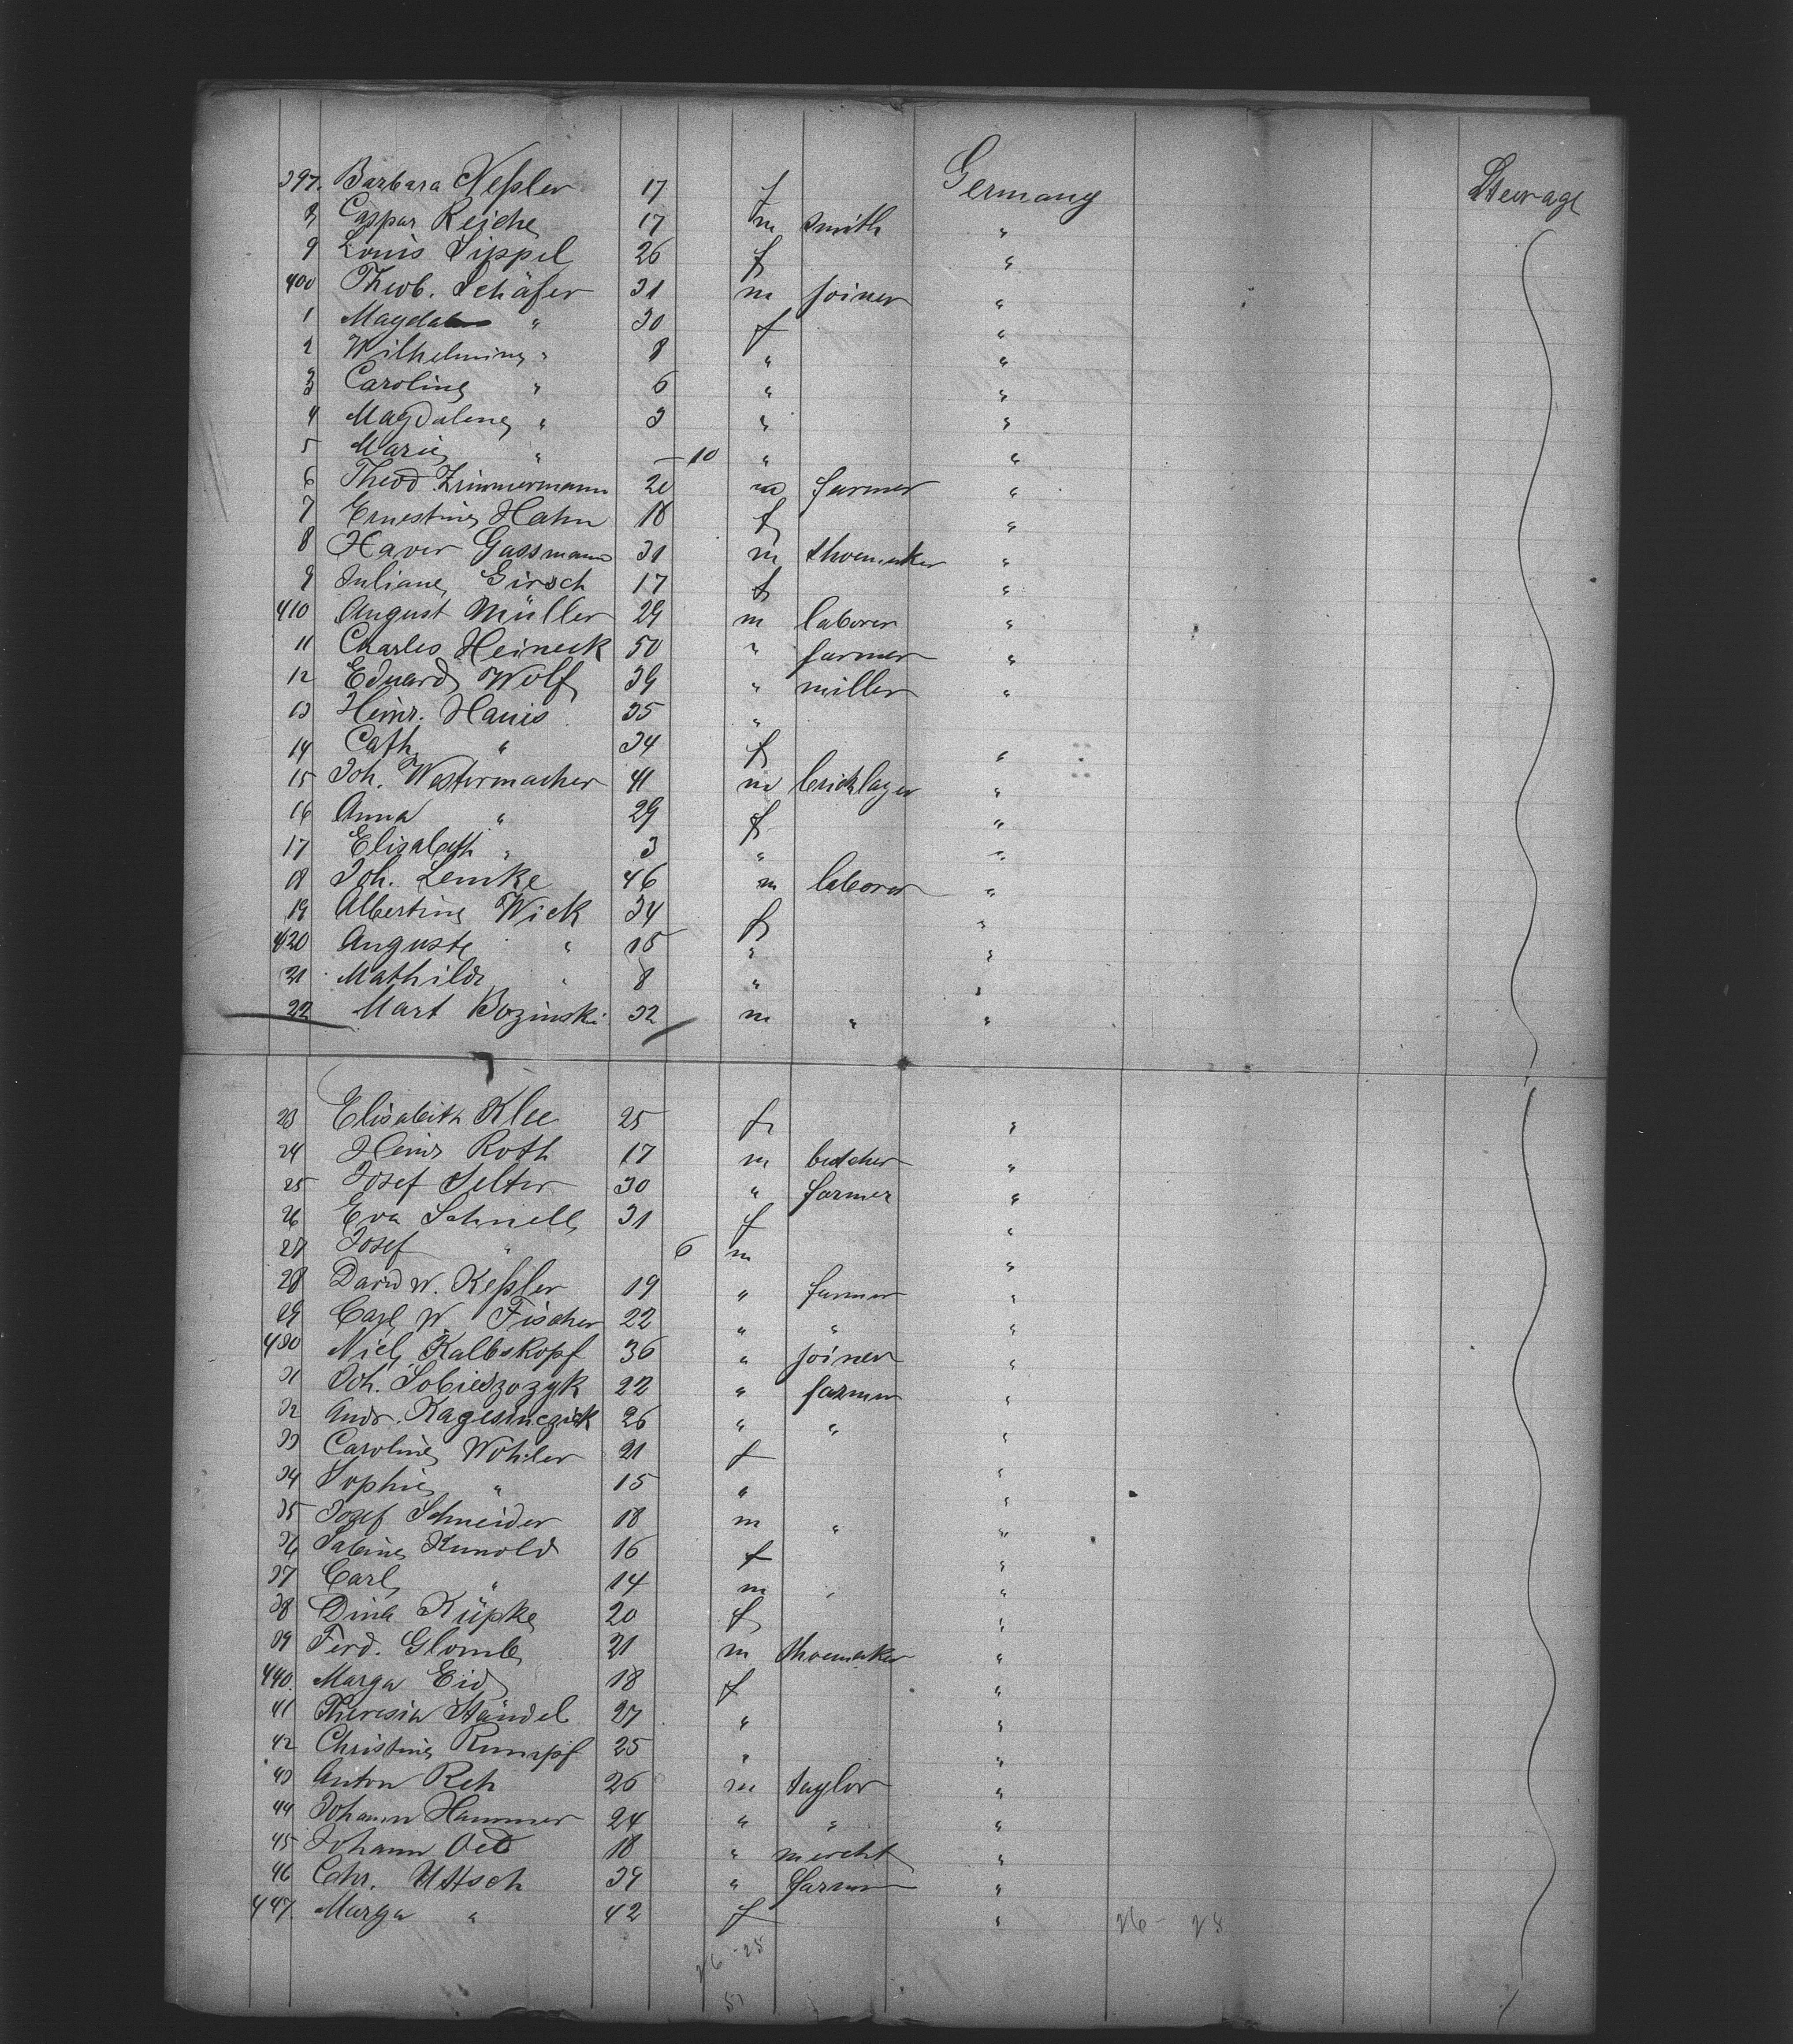 397. Barbara Keßler 17 f Germany Steerage
8 Caspar Reiche 17 m smith "
9 Louis Sippel 26 f "
400 Theob. Schäfer 31 m joiner "
1 Magdalena " 30 f "
2 Wilhelmine " 8 " "
3 Caroline " 6 " "
4 Magdalena " 3 " "
5 Marie " — 10 " "
6 Theod Zimmermann 20 m farmer "
7 Ernestine Hahn 18 f "
8 Xaver Gassmann 31 m shoemaker "
9 Juliane Girsch 17 f "
410 August Müller 29 m laborer "
11 Charles Heineck 50 " farmer "
12 Eduard Wolf 39 " miller "
13 Heinr. Hauis 35 "
14 Cath " 34 f "
15 Joh. Westermacher 41 m bricklayer "
16 Anna " 29 f "
17 Elisabeth " 3 " "
18 Joh. Lemke 46 m laborer "
19 Albertine Wick 34 f "
420 Auguste " 15 " "
21 Mathilde " 8 " "
22 Mart Bozinski 32 m " "
23 Elisabeth Klee 25 f "
24 Heinr Roth 17 m butcher "
25 Josef Selter 30 " farmer "
26 Eva Schnell 31 f "
27 Josef " 6 m "
28 David W. Keßler 19 " farmer "
29 Carl W. Fischer 22 " " "
430 Nicl Kalbskopf 36 " joiner "
31 Joh. Sobieszozyk 22 " farmer "
32 Andr. 26 " " "
33 Caroline Wöhler 21 f "
34 Sophie " 15 " "
35 Josef Schneider 18 m " "
36 Sabine Kunold 16 f "
37 Carl " 14 m " "
38 Dina Küpke 20 f "
39 Ferd. Glomb 21 m shoemaker "
440. Marga Eid 18 f "
41 Theresia Händel 27 " "
42 Christine Rumpf 25 " "
43 Anton Reh 26 m taylor "
44 Johann Hammer 24 " " "
45 Johann Oed 18 " mercht "
46 Chr. Uttsch 39 " farmer "
447 Marga " 42 f " 26 - 25
26 - 25
51